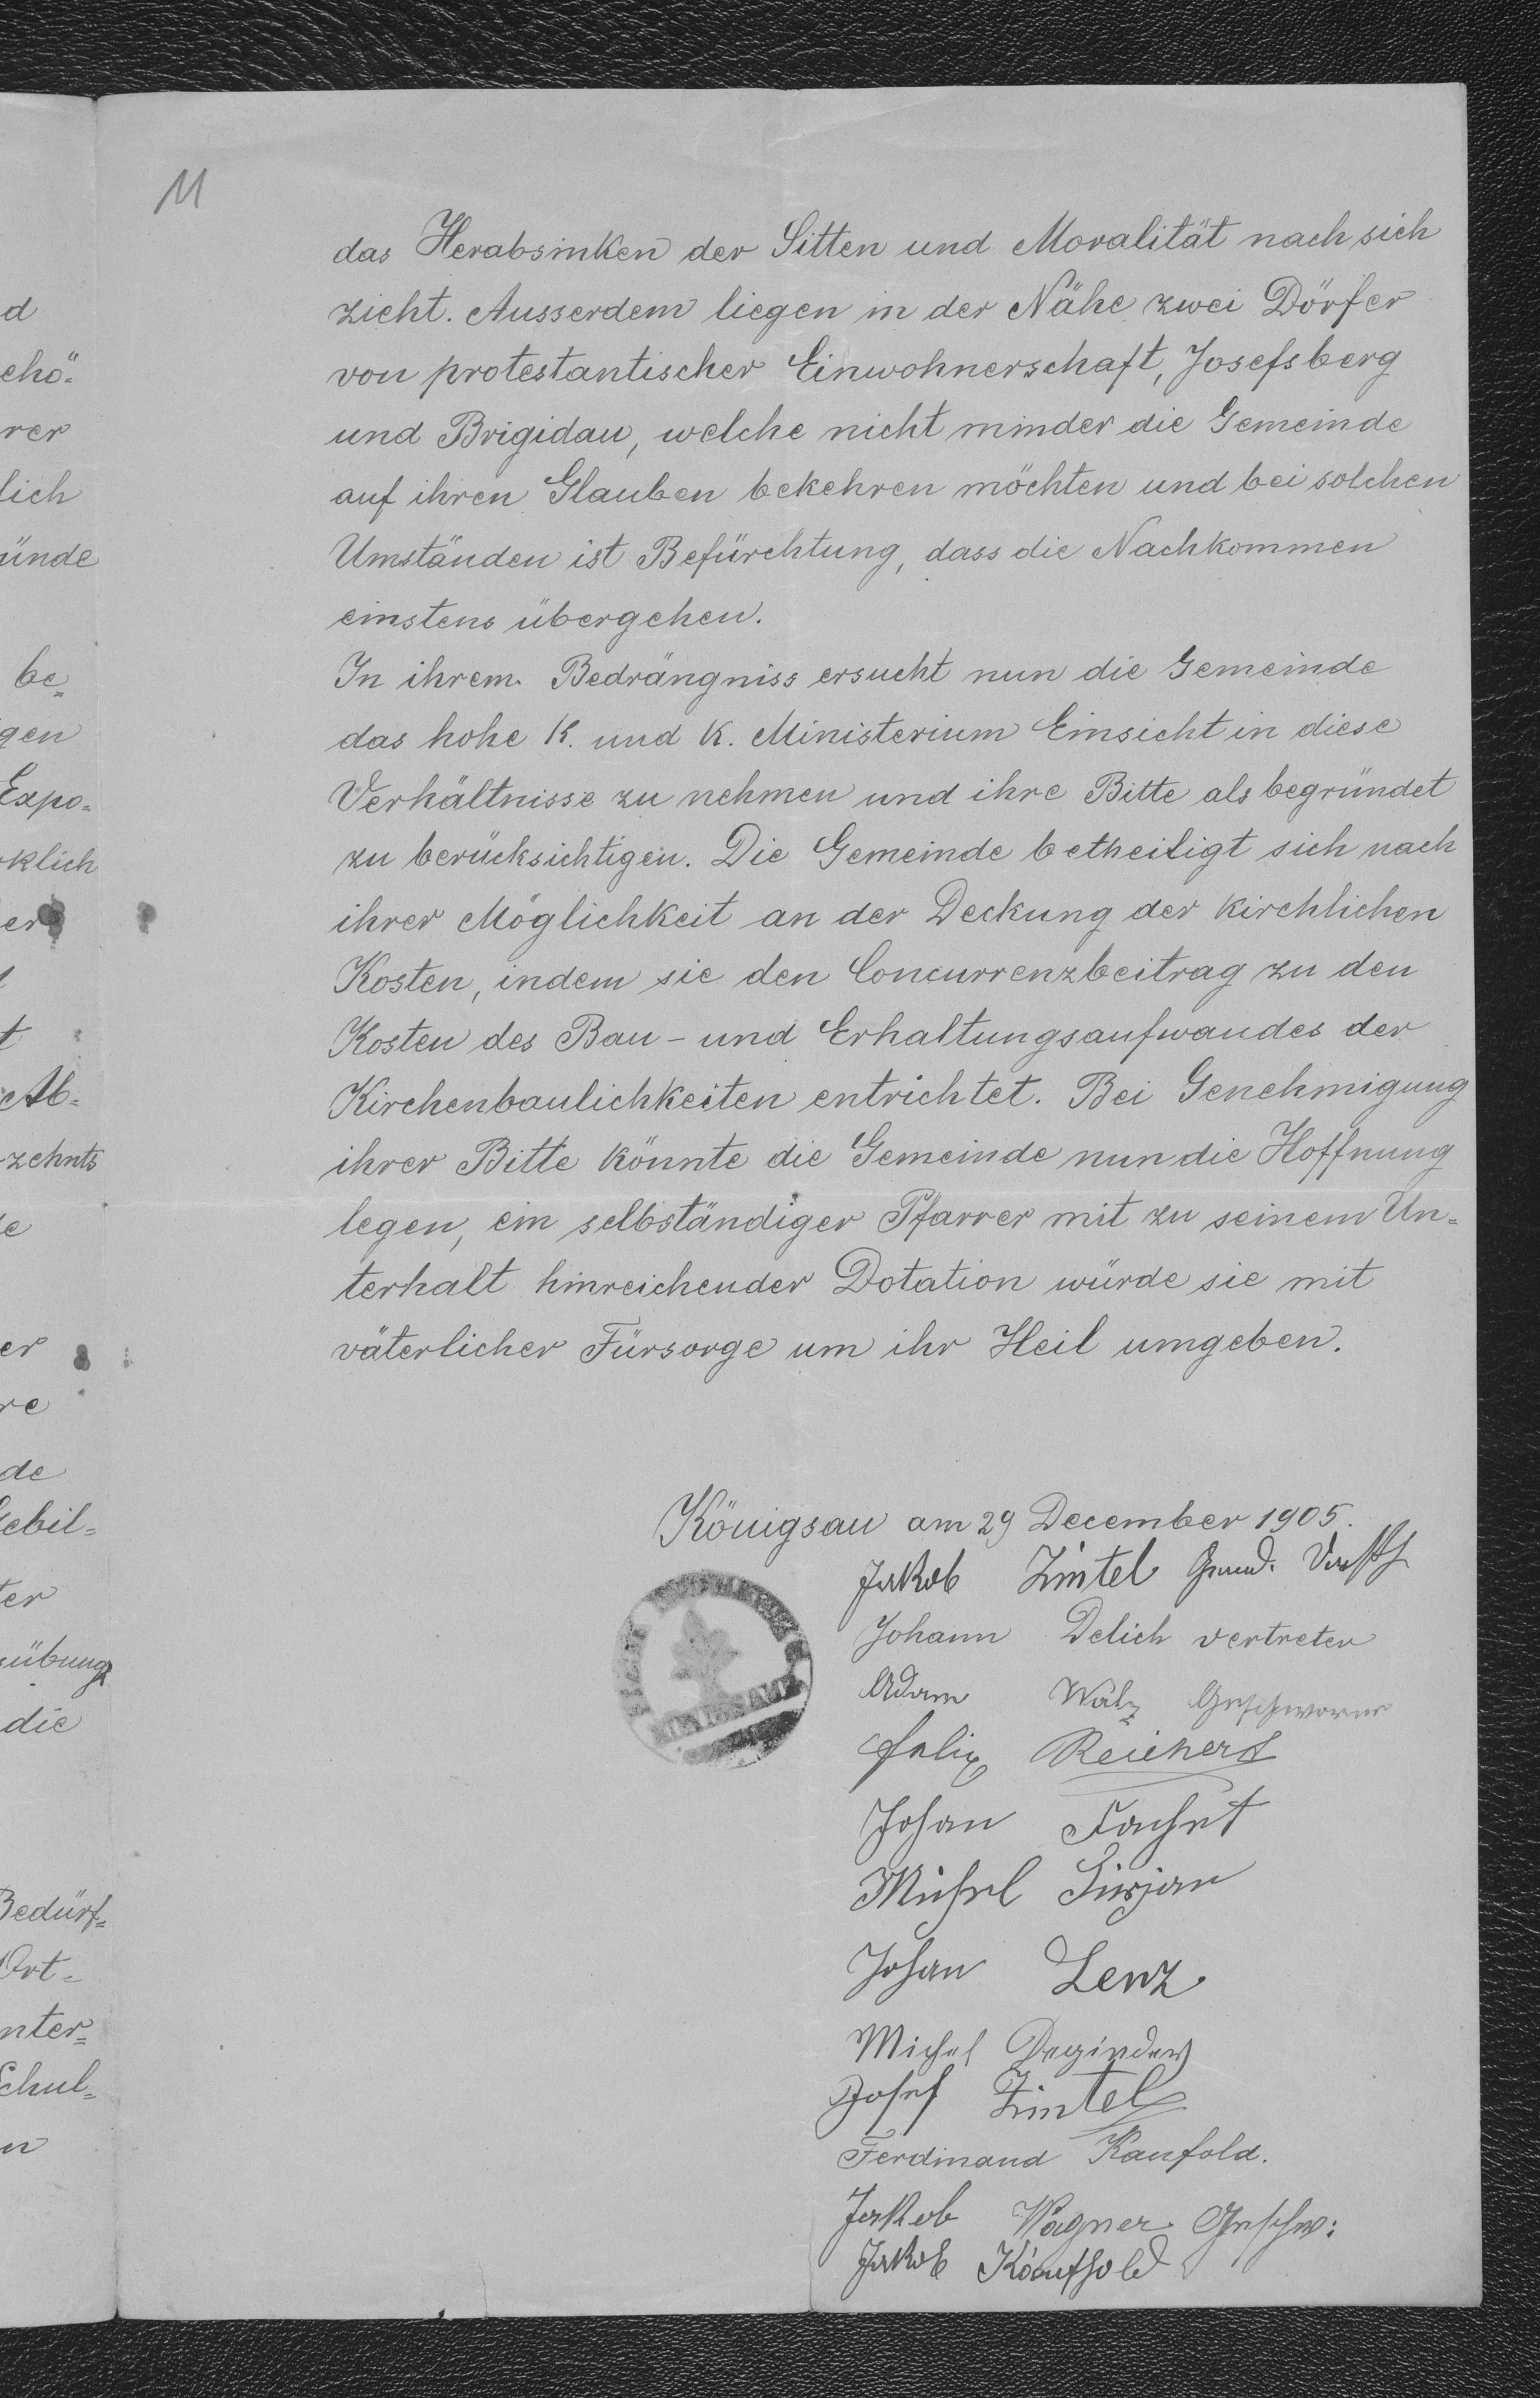 11
das Herabsinken der Sitten und Moralität nach sich
zieht. Ausserdem liegen in der Nähe zwei Dörfer
von protestantischer Einwohnerschaft, Josefsberg
und Brigidau, welche nicht minder die Gemeinde
auf ihren Glauben bekehren möchten und bei solchen
Umständen ist Befürchtung, dass die Nachkommen
einstens übergehen.
In ihrem Bedrängniss ersucht nun die Gemeinde
das hohe K. und K. Ministerium Einsicht in diese
Verhältnisse zu nehmen und ihre Bitte als begründet
zu berücksichtigen. Die Gemeinde betheiligt sich nach
ihrer Möglichkeit an der Deckung der kirchlichen
Kosten, indem sie den Concurrenzbeitrag zu den
Kosten des Bau- und Erhaltungsaufwandes der
Kirchenbaulichkeiten entrichtet. Bei Genehmigung
ihrer Bitte könnte die Gemeinde nun die Hoffnung
legen, ein selbständiger Pfarrer mit zu seinem Un-
terhalt hinreichender Dotation würde sie mit
väterlicher Fürsorge um ihr Heil umgeben.
Königsau am 29 December 1905.
Jakob Zintel
Johann Delich vertreter
Adam Walz Geschworner
Felix Reichert
Johan
Michel
Johan Lenz
Michel
Josef Zintel
Ferdinand Kaufold.
Jakob Wagner Geschw:
Jakob
d
ehö-
rer
lich
ünde
be-
gen
Expo-
klich
er
t
Ab-
zehnts
e
er
re
de
Gebil-
ter
sübung
die
Bedürf-
Ort-
nter-
Schul-
n